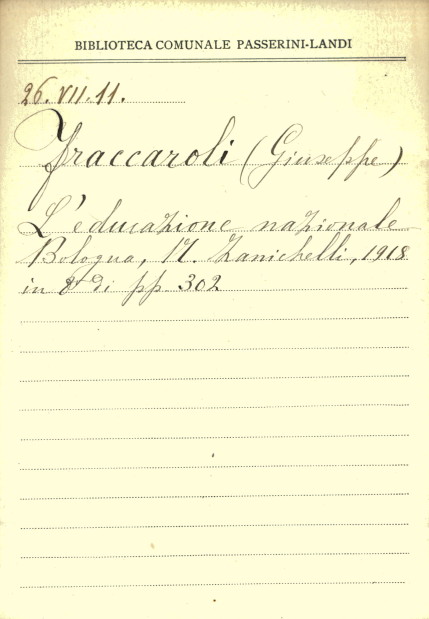 BIBLIOTECA COMUNALE PASSERINI-LANDI
26.VII.11.
Fraccaroli (Giuseppe)
L'educazione nazionale
Bologna, N. Zanichelli, 1918
in 8º di pp 302